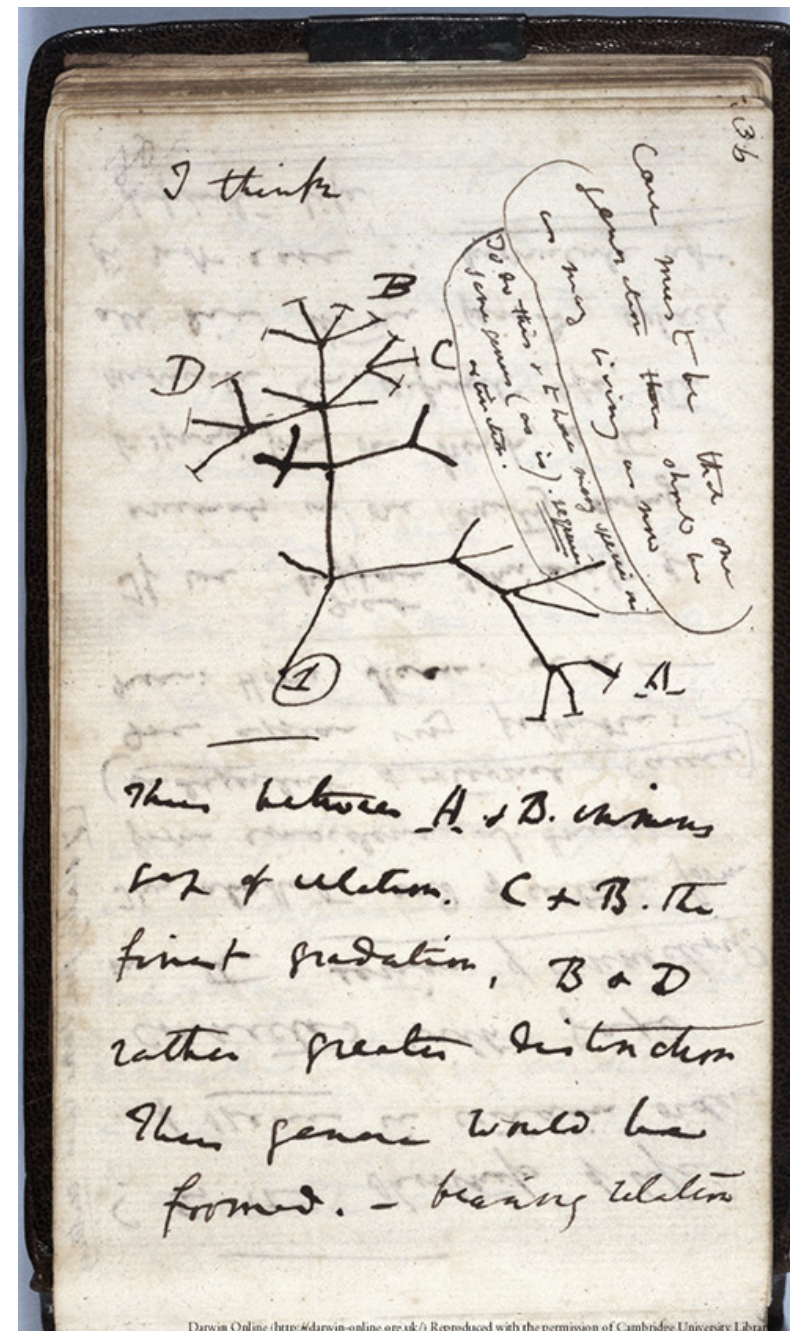 36
I think
Case must be that one
generation then should be
as many living as now
To do this & to have many species in
same genus (as is). requires
extinction.
B
C
D
1
A
Thus between A & B. immens
gap of relation. C & B. the
finest gradation, B & D
rather greater distinction
Thus genera would be
formed. — bearing relation
Darwin Online (http://darwin-online.org.uk/) Reproduced with the permission of Cambridge University Librar